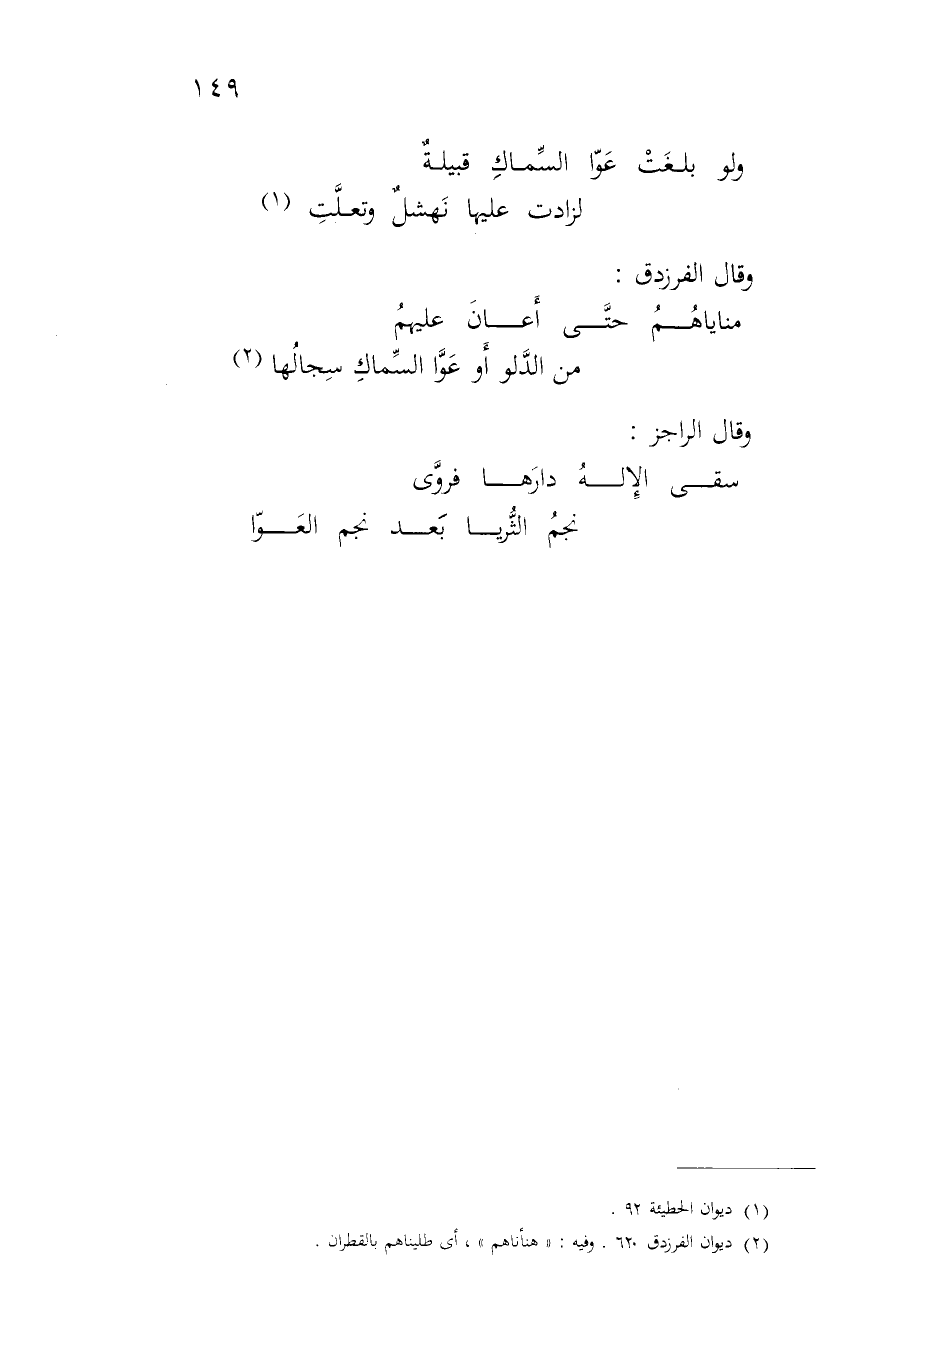 ١٤٩
ولو بلغَتْ عَوّا السِّماكِ قبيلةٌ
لزادت عليها نَهشلٌ وتعلَّتِ (١)
وقال الفرزدق :
مناياهُمُ حتَّى أَعانَ عليهمُ
من الدَّلو أَو عَوَّا السِّماكِ سِجالُها (٢)
وقال الراجز :
سقى الإِلهُ دارَها فروَّى
نجمُ الثُّريا بَعد نجم العَوّا
(١) ديوان الحطيئة ٩٢ .
(٢) ديوان الفرزدق ٦٢٠ . وفيه : « هنأناهم » ، أى طليناهم بالقطران .